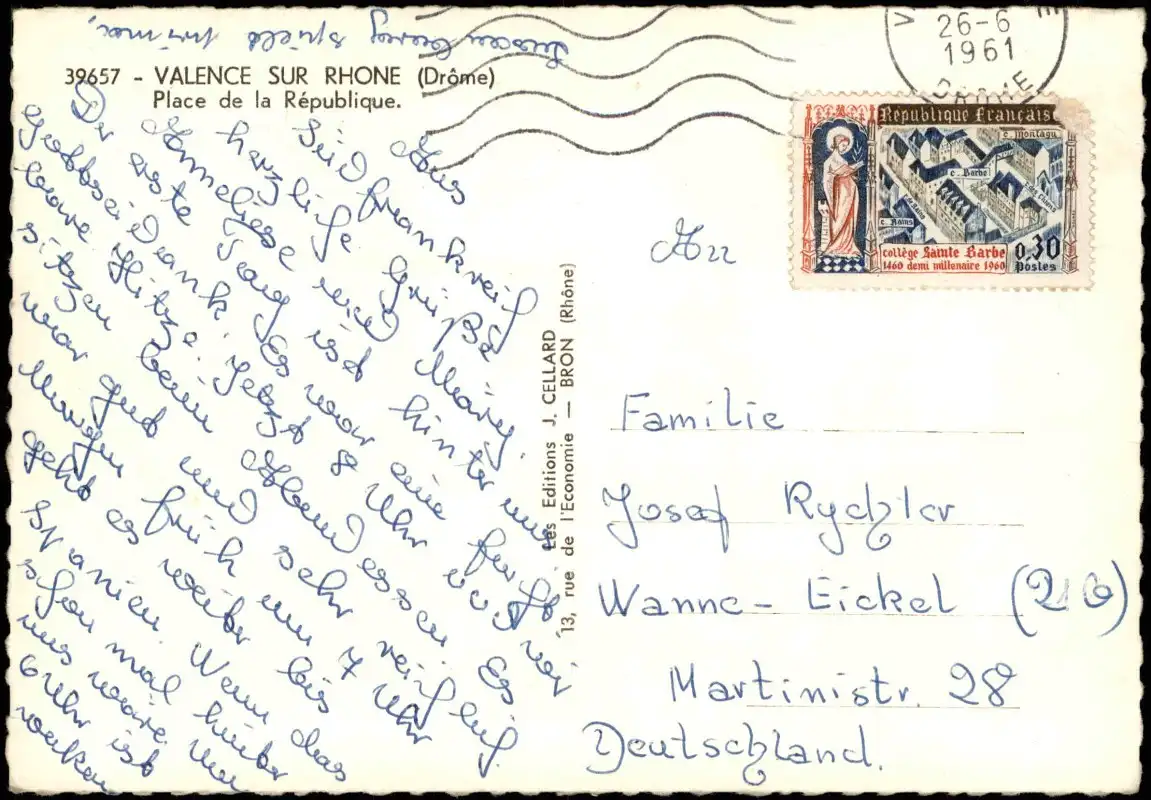 26-6
1961
DROME
39657 - VALENCE SUR RHONE (Drôme)
Place de la République.
République Française
c. Montagu
c. Barbe
c. Rains
collège Sainte Barbe
1460 demi millenaire 1960
0,30
Postes
Aus
Südfrankreich
herzliche Grüße
Anneliese und Mary.
Der erste Tag ist hinter uns
Gottseidank. Es war eine furcht
bare Hitze. Jetzt 8 Uhr und wir
sitzen beim Abendessen. Es
war gut und sehr reichlich.
Morgen früh um 7 Uhr
geht es weiter bis
Spanien. Wenn das
schon mal hinter
uns wäre. Um
6 Uhr ist
wecken
spielt prima,
Les Editions J. CELLARD
13, rue de l'Economie — BRON (Rhône)
An
Familie
Josef Rychler
Wanne-Eickel (216)
Martinistr. 28
Deutschland.